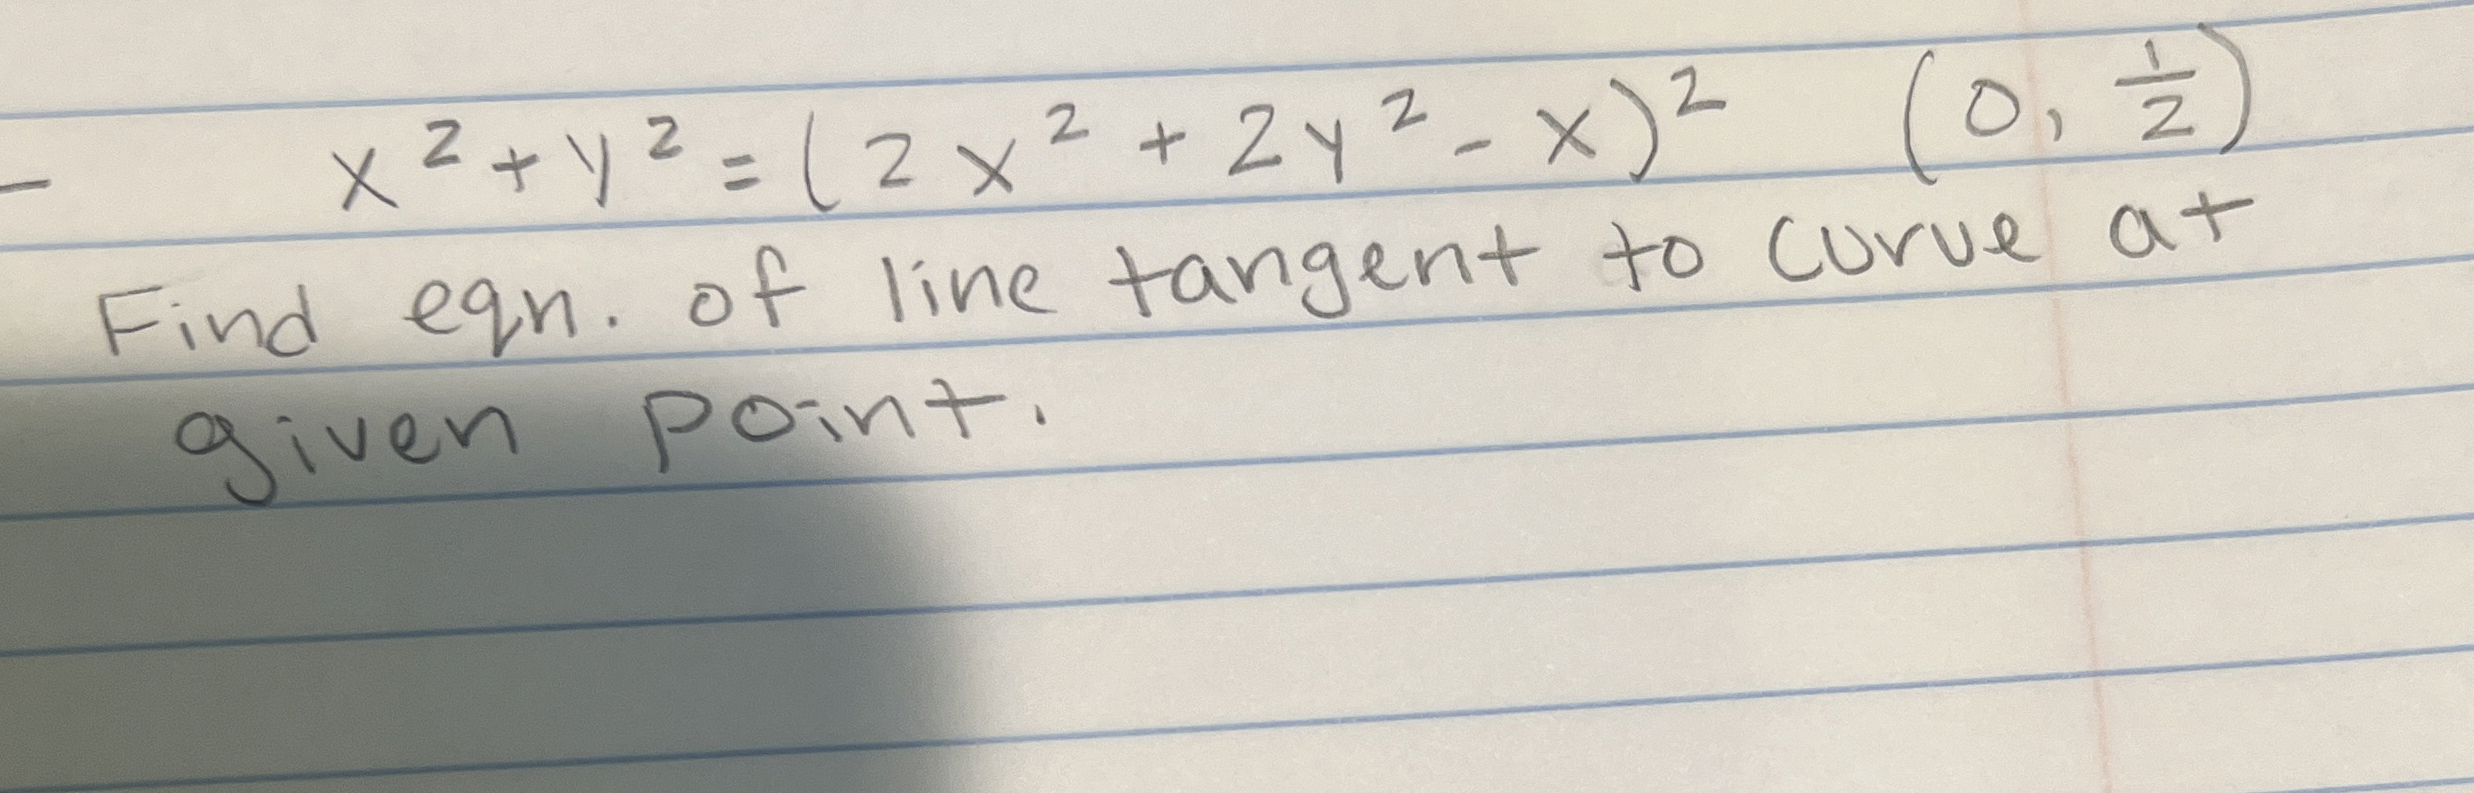 - x² + y² = (2x² + 2y² - x)² (0, 1/2)
Find eqn. of line tangent to curve at
given point.